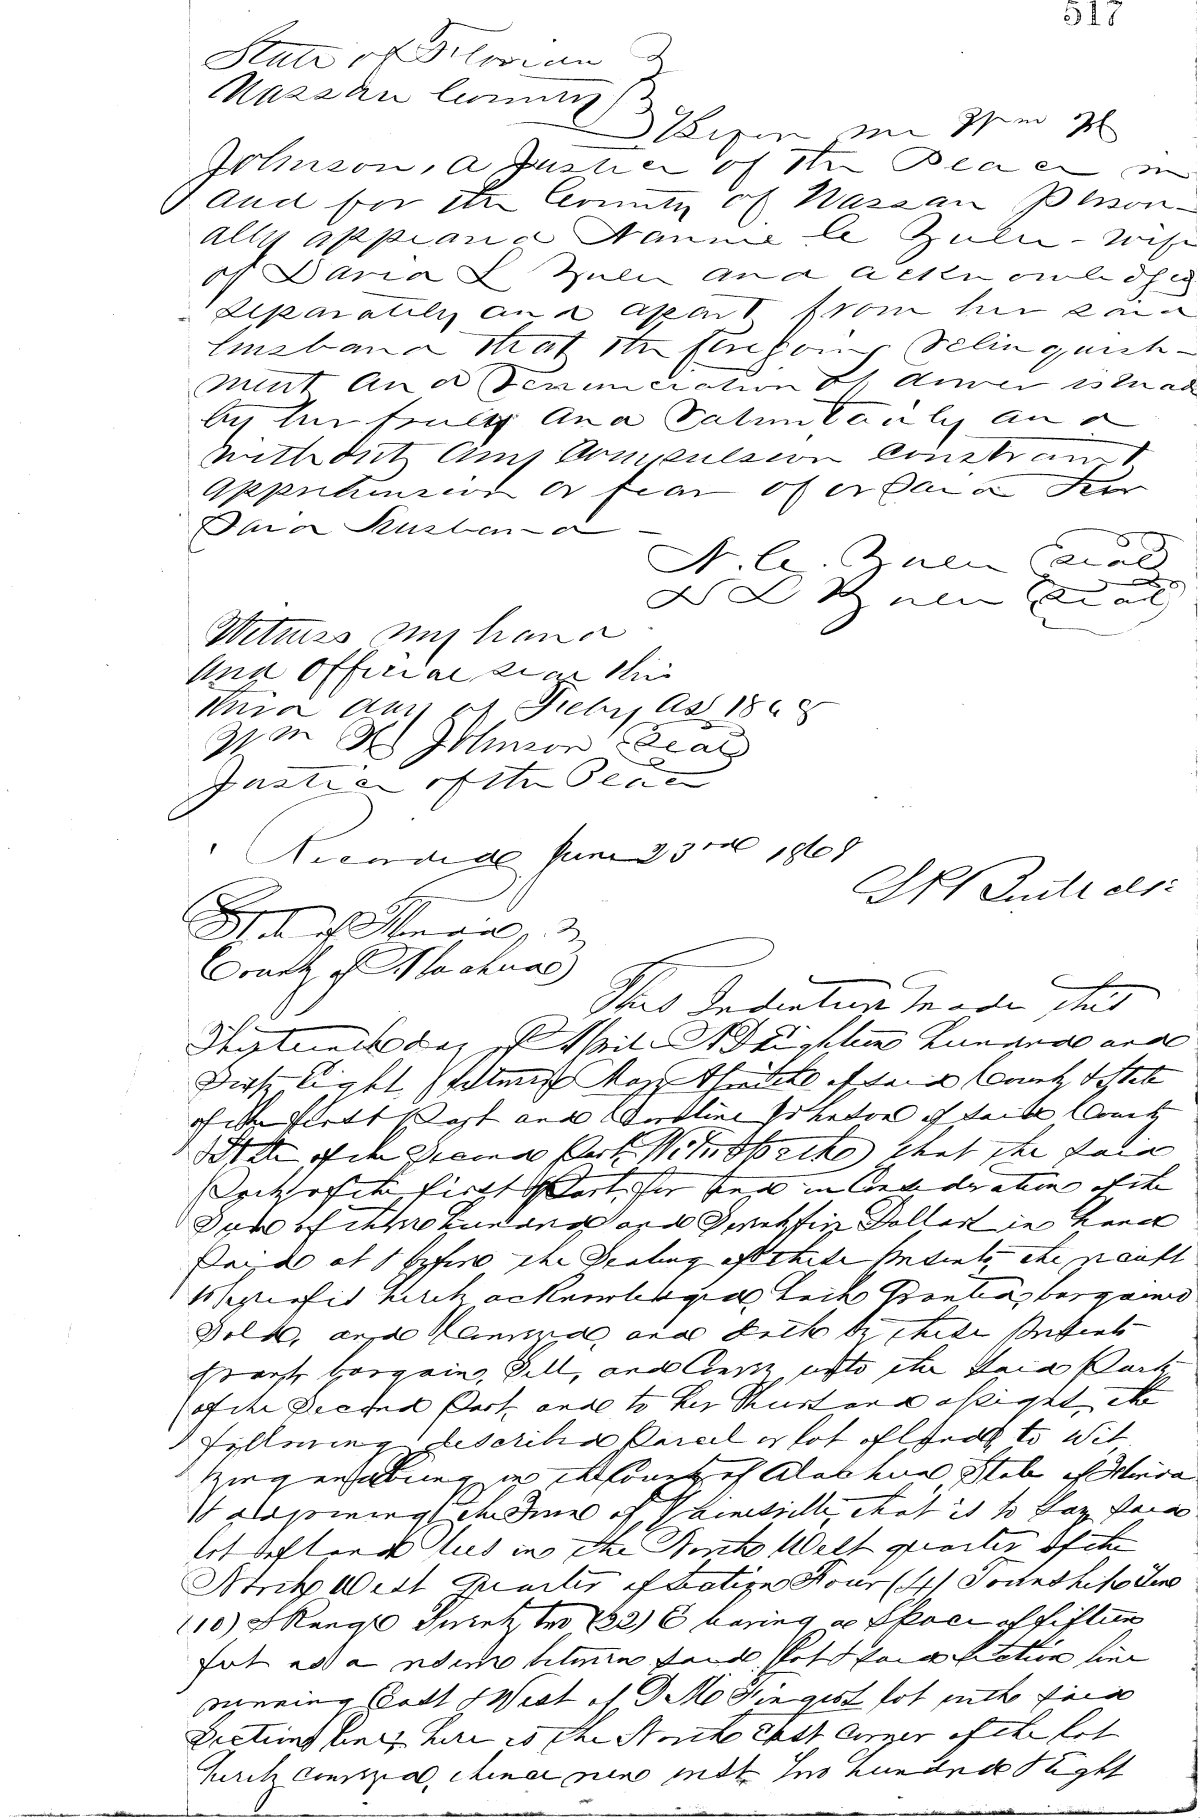 517
State of Florida
Nassau County
Before me Wm H
Johnson, a Justice of the Peace in
and for the County of Nassau Person-
ally appeared Nannie C Yulee - wife
of David L Yulee and acknowledged
separately and apart from her said
husband that the foregoing relinquish-
ment and renunciation of dower is made
by her freely and voluntarily and
without any compulsion constraint
apprehension or fear of or said her
said husband -
N. C. Yulee (Seal)
D L Yulee (Seal)
Witness my hand
and official seal this
third day of Feby AD 1868
Wm H Johnson (Seal)
Justice of the Peace
Recorded June 23rd 1868
State of Florida
County of Alachua
This Indenture made this
Thirteenth day of April AD Eighteen hundred and
Sixty Eight between of said County & State
of the first Part and Caroline Johnson of said County
& State of the Second Part Witnesseth that the said
Party of the first Part for and in Consideration of the
Sum of three hundred and Seventy five Dollars in hand
Paid at & before the Sealing of these presents the receipt
whereof is hereby acknowledged hath Granted, bargained
Sold, and Conveyed, and doth by these presents
grant bargain, Sell, and Convey unto the said Party
of the Second Part, and to her heirs and assigns, the
following described Parcel or lot of land to wit
lying and being in the County of Alachua State of Florida
& adjoining the Town of Gainesville, that is to say said
lot of land lies in the North West quarter of the
North West quarter of Section Four (4) Township Ten
(10) & Range Twenty two (22) E having a Space of fifteen
feet as a between said lot & said Section line
running East & West of D M lot on the said
Section line, here is the North East corner of the lot
hereby conveyed, thence west Two hundred & Eight